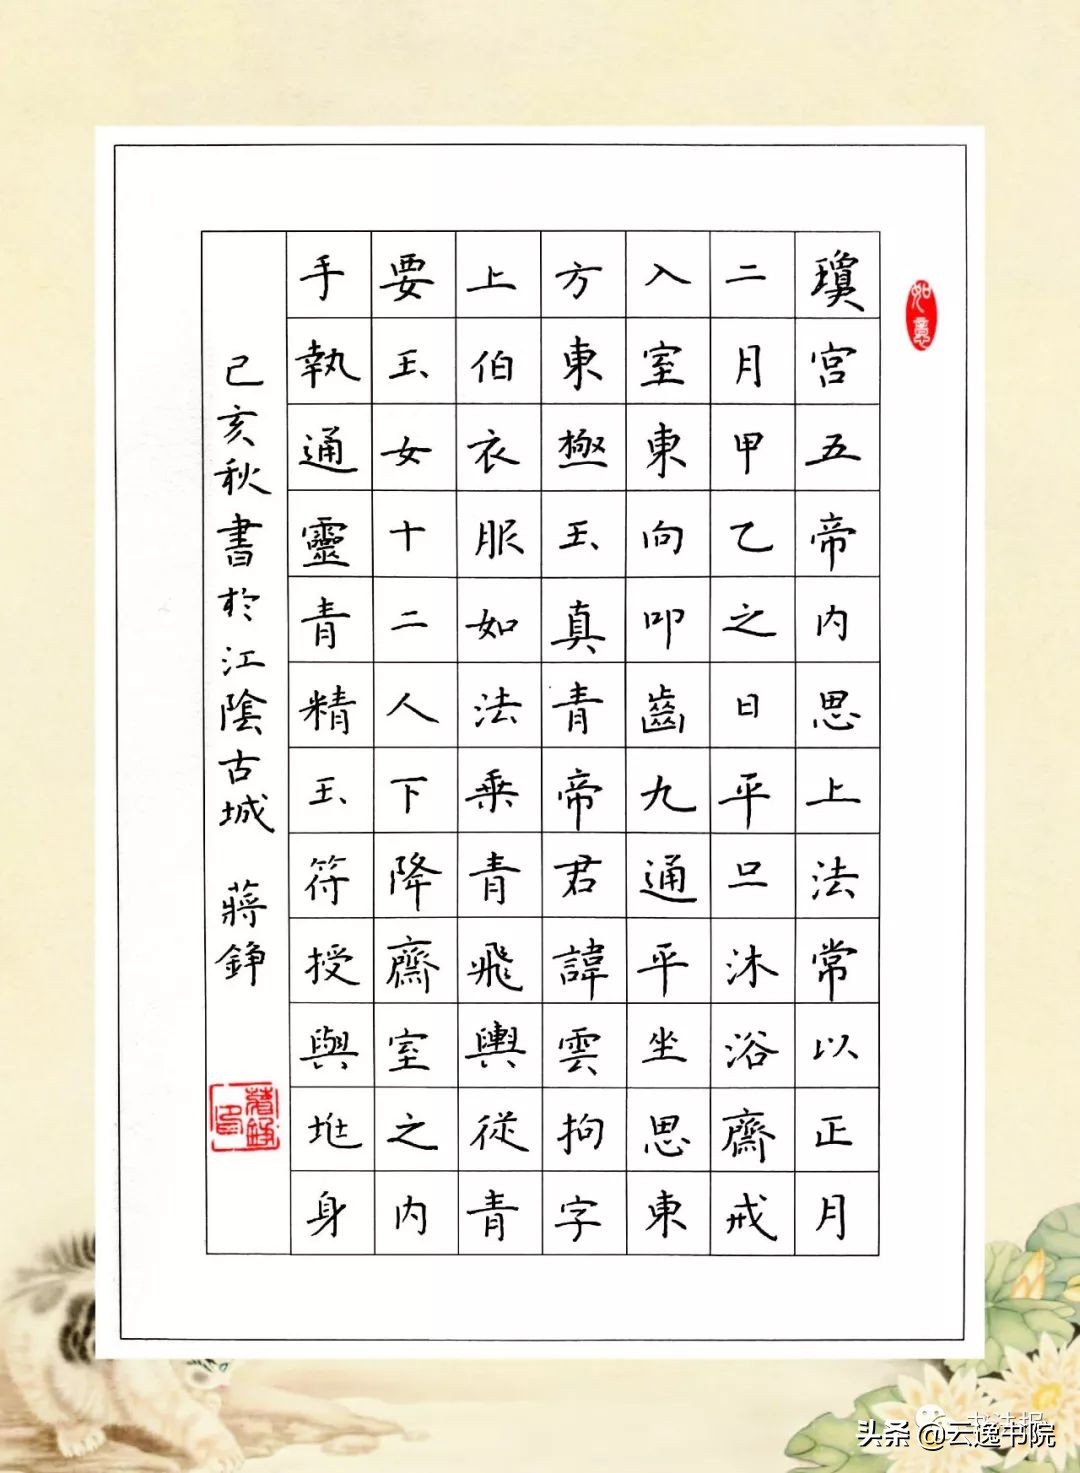 如意
瓊宫五帝内思上法常以正月
二月甲乙之日平旦沐浴齋戒
入室東向叩齒九通平坐思東
方東極玉真青帝君諱雲拘字
上伯衣服如法乗青飛輿從青
要玉女十二人下降齋室之内
手執通靈青精玉符授與兆身
己亥秋書於江陰古城 蔣錚
蔣錚印
书法报
头条 @云逸书院